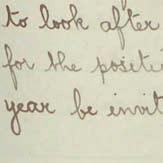 to look after
for the positi
year be invit